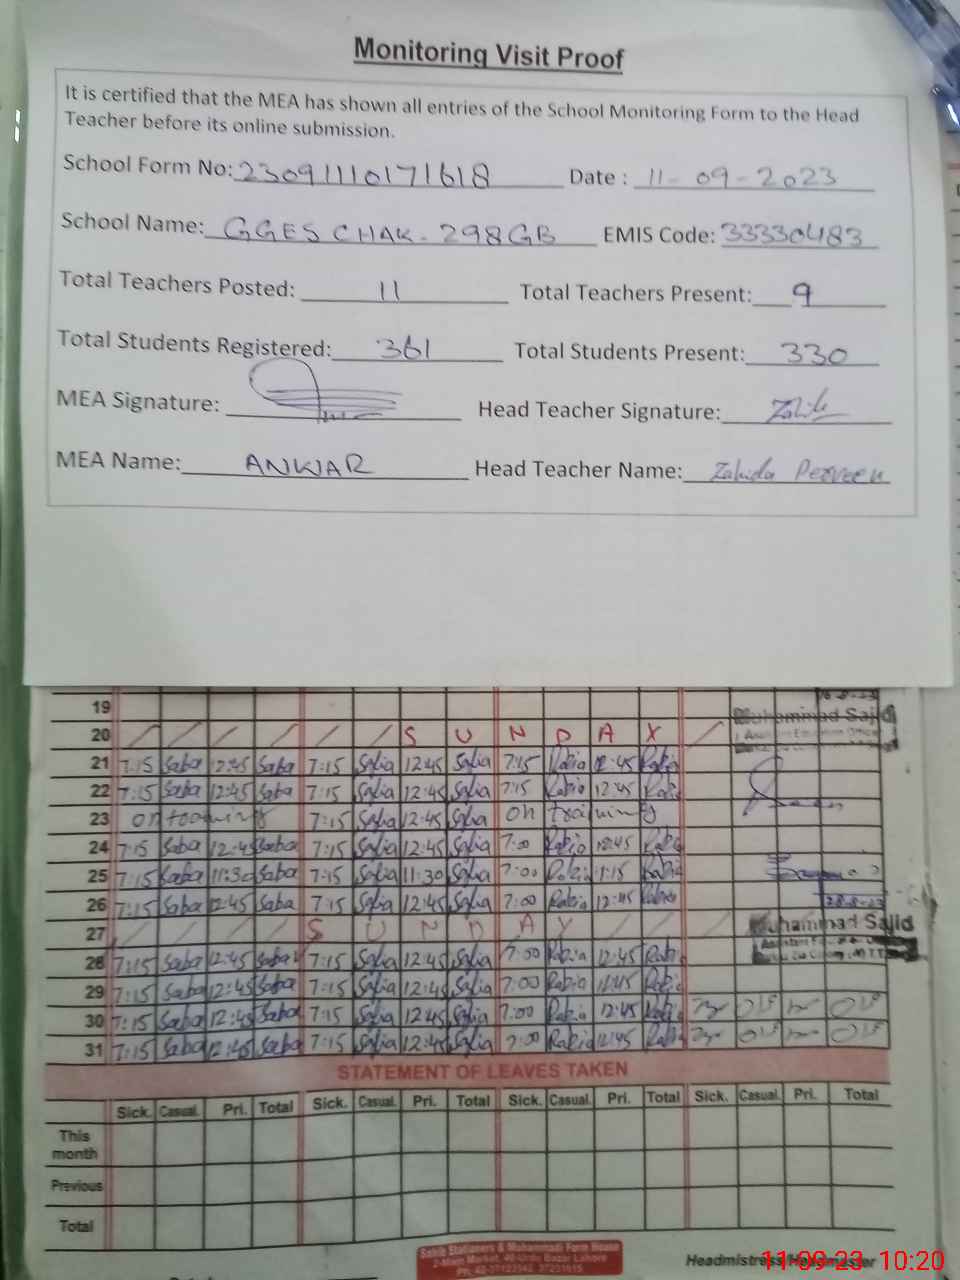 Monitoring Visit Proof
It is certified that the MEA has shown all entries of the School Monitoring Form to the Head
Teacher before its online submission.
School Form No: 23091110171618 Date : 11-09-2023
School Name: GGES CHAK-298GB EMIS Code: 33330483
Total Teachers Posted: 11 Total Teachers Present: 9
Total Students Registered: 361 Total Students Present: 330
MEA Signature: Head Teacher Signature:
MEA Name: ANWAR Head Teacher Name: Zahida Perveen
19
20 S U N D A Y
Muhammad Sajid
21 7:15 Saba 12:45 Saba 7:15 Safia 12:45 Safia 7:15 Rabia 12:45 Rabia
22 7:15 Saba 12:45 Saba 7:15 Safia 12:45 Safia 7:15 Rabia 12:45 Rabia
23 on 7:15 Safia 12:45 Safia on training
24 7:15 Saba 12:45 Saba 7:15 Safia 12:45 Safia 7:00 Rabia 12:45 Rabia
25 7:15 Saba 11:30 Saba 7:15 Safia 11:30 Safia 7:00 Rabia 1:15 Rabia
26 7:15 Saba 12:45 Saba 7:15 Safia 12:45 Safia 7:00 Rabia 12:45 Rabia 28-8-23
27 S U N D A Y Muhammad Sajid
28 7:15 Saba 12:45 Saba 7:15 Safia 12:45 Safia 7:00 Rabia 12:45 Rabia
29 7:15 Saba 12:45 Saba 7:15 Safia 12:45 Safia 7:00 Rabia Rabia
30 7:15 Saba 12:45 Saba 7:15 Safia 12:45 Safia 7:00 Rabia 12:45 Rabia
31 7:15 Saba 12:45 Saba 7:15 Safia 12:45 Safia 7:00 Rabia 12:45 Rabia
STATEMENT OF LEAVES TAKEN
Sick. Casual. Pri. Total Sick. Casual. Pri. Total Sick. Casual. Pri. Total Sick. Casual. Pri. Total
This
month
Previous
Total
Sahib Stationers & Muhammadi Form House
2-Main Market, 40-Urdu Bazar Lahore
Headmistress/Headmaster
11-09-23 10:20